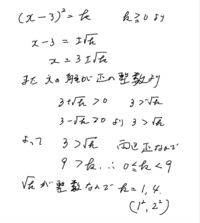 (x-3)² = k　k≧0 より
x-3 = ±√k
x = 3±√k
また xの解が正の整数より
3+√k > 0　3 > √k
3-√k > 0 より 3 > √k
よって 3 > √k 両辺正なので
9 > k ∴ 0≦k<9
√kが整数なので k=1, 4.
(1², 2²)